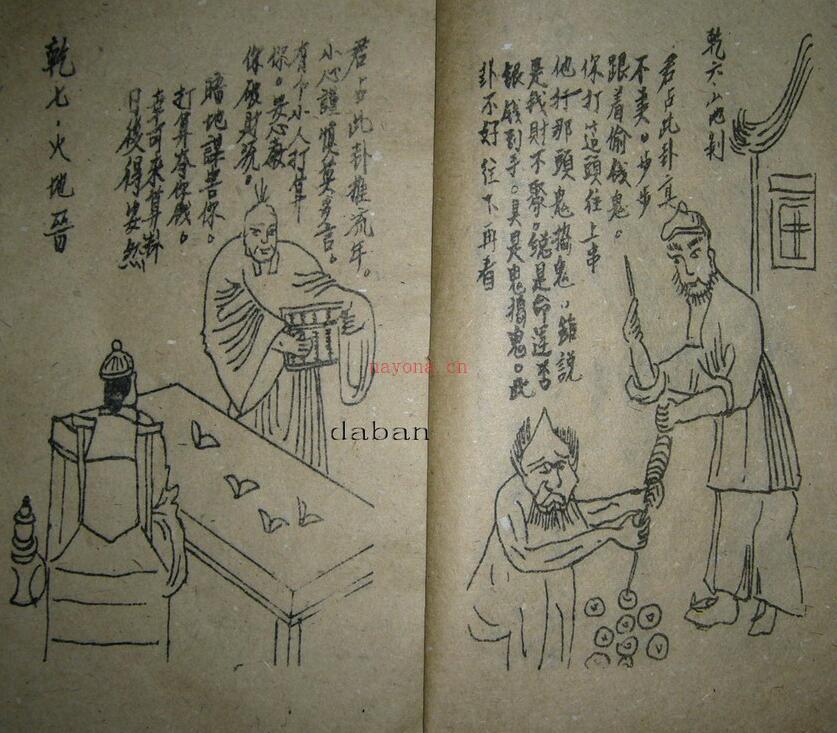 乾六山地剥
君占此卦真
不美。步步
跟着偷钱鬼。
你打這頭往上串
他打那頭鬼搗鬼。錯說
是我財不聚。總是命運不
銀錢到手。具是鬼搗鬼。此
卦不好往下再看
乾七·火地晋
君占此卦推流年。
小心謹慎莫多言。
有个小人打算
你。安心教
你破財死。
暗地謀害你。
打算夸你錢。
幸可来算卦
日後得安然
nayona.cn
daban